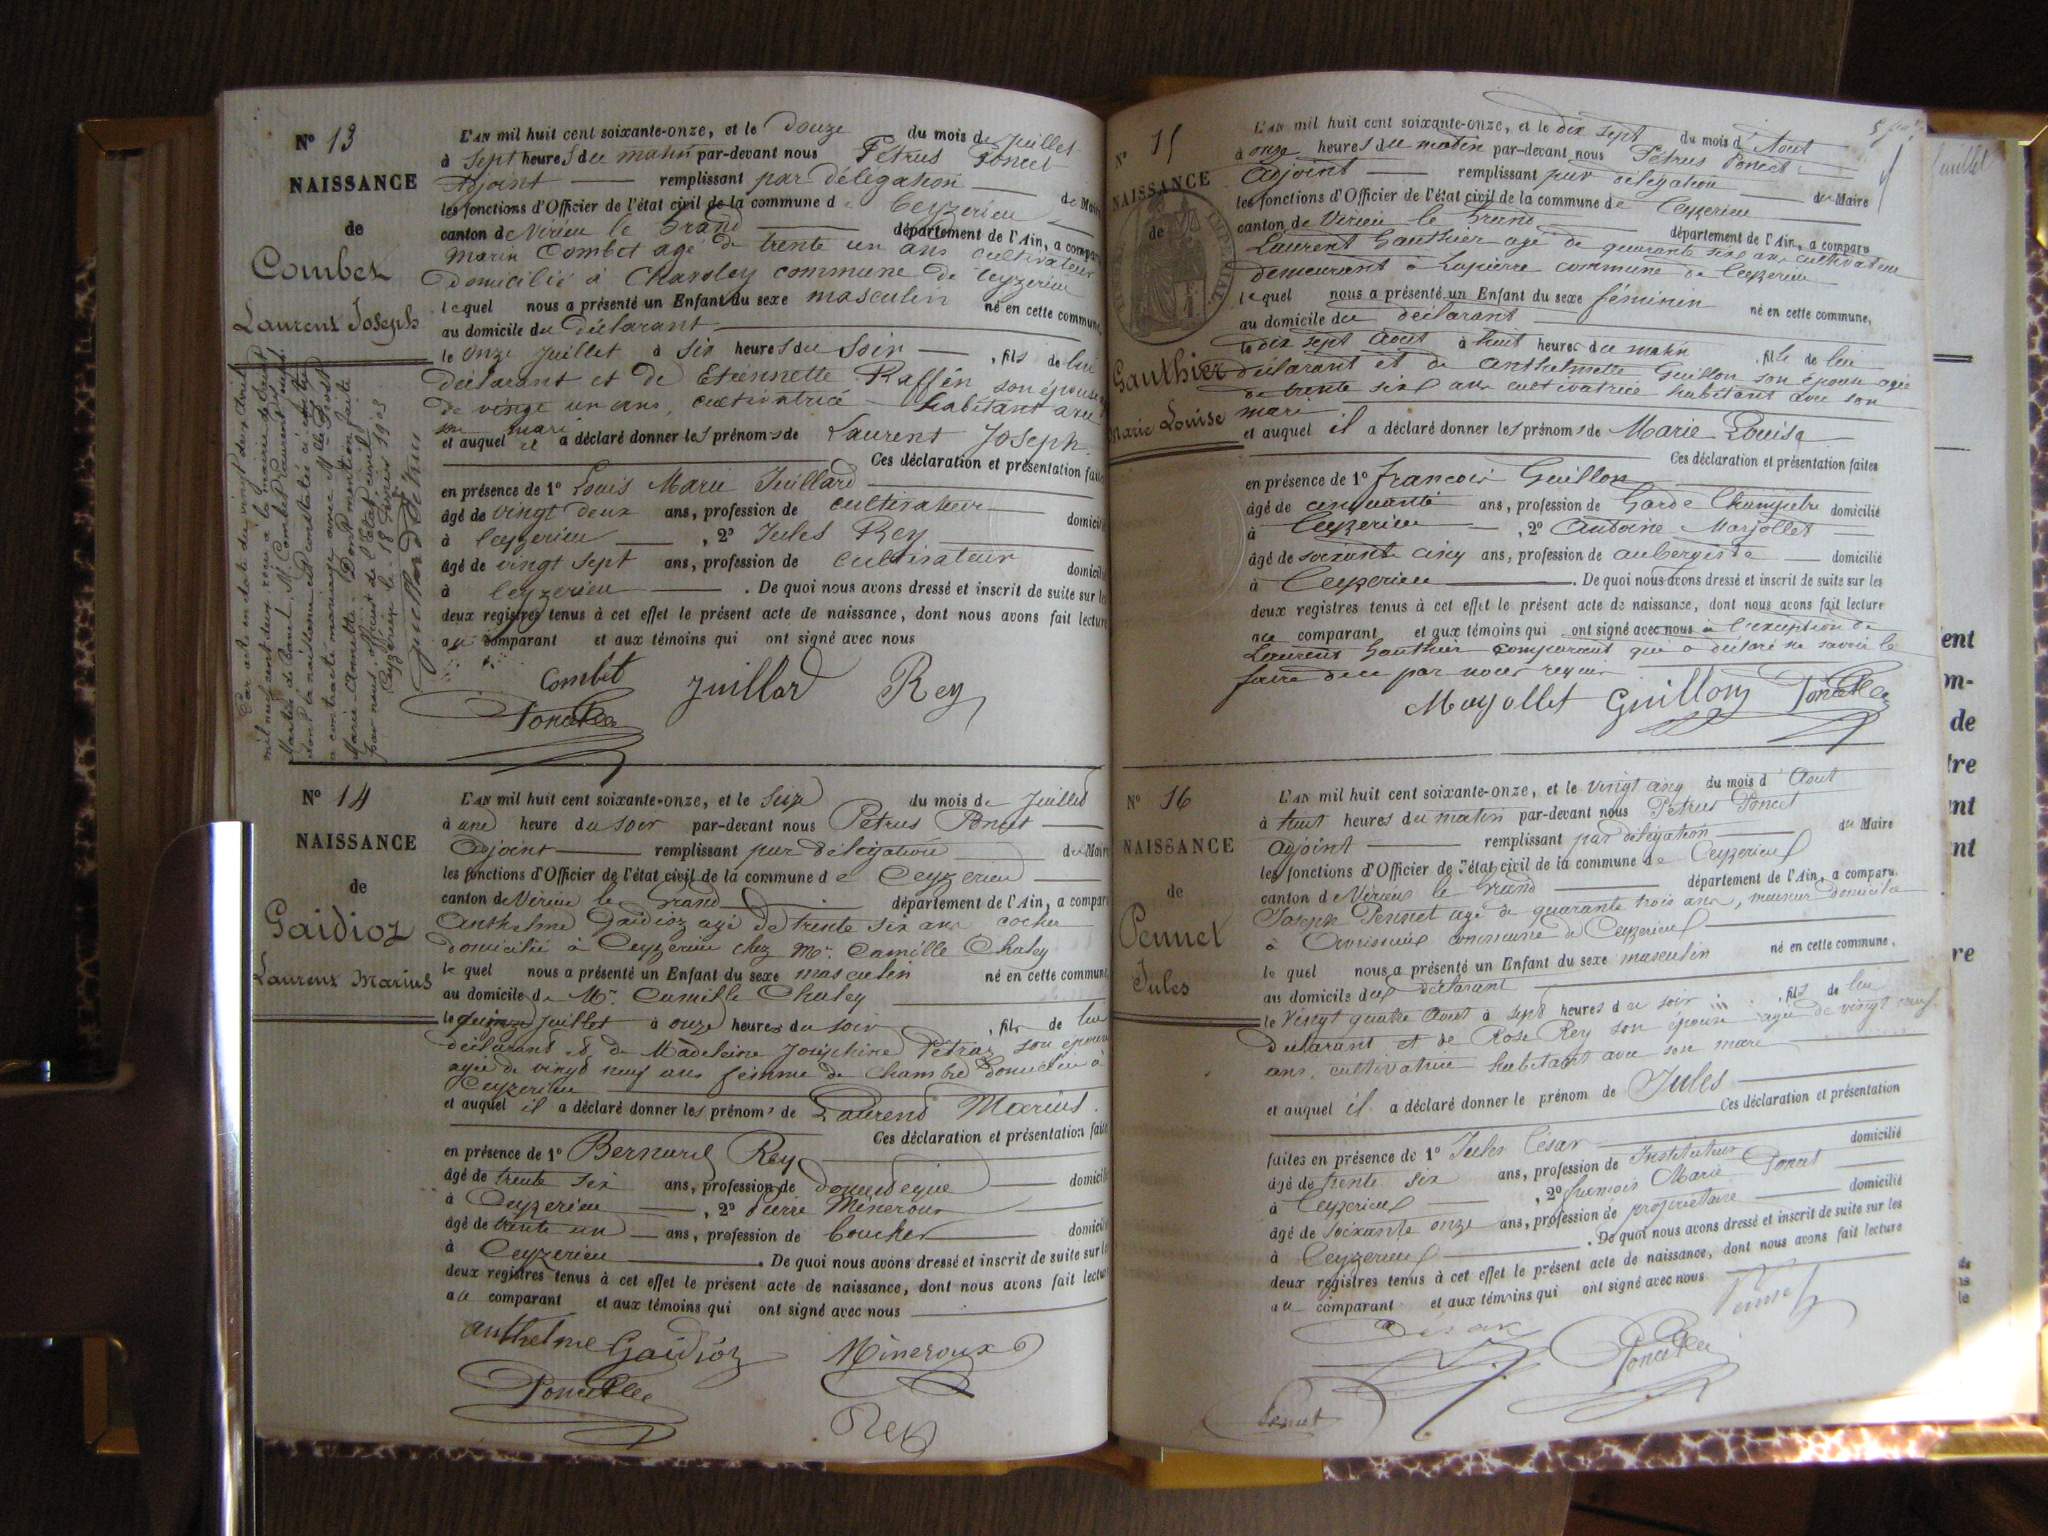 N° 13
NAISSANCE
de
Combet
Laurent Joseph
L'AN mil huit cent soixante-onze, et le Douze du mois de Juillet
à sept heures du matin par-devant nous Pétrus Poncet
Adjoint remplissant par délégation du Maire
les fonctions d'Officier de l'état civil de la commune de Ceyzerieu
canton de Virieu le Grand département de l'Ain, a comparu
Marin Combet agé de trente un ans cultivateur
domicilié à Chavoley commune de Ceyzerieu
lequel nous a présenté un Enfant du sexe masculin né en cette commune,
au domicile du déclarant
le onze Juillet à six heures du soir, fils de lui
déclarant et de Etiennette Raffin son épouse
de vingt un ans, cultivatrice habitant avec
son mari
et auquel il a déclaré donner les prénoms de Laurent Joseph.
Ces déclaration et présentation faites
en présence de 1° Louis Marie Juillard
âgé de vingt deux ans, profession de cultivateur domicilié
à Ceyzerieu, 2° Jules Rey
âgé de vingt sept ans, profession de cultivateur domicilié
à Ceyzerieu. De quoi nous avons dressé et inscrit de suite sur les
deux registres tenus à cet effet le présent acte de naissance, dont nous avons fait lecture
au comparant et aux témoins qui ont signé avec nous
Combet Juillard Rey
Poncet
Par acte en date du vingt deux Avril
mil neuf cent deux, reçu à la mairie de
dont la naissance est constatée ci contre
a contracté mariage avec Mlle
Marie Dont mention faite
par nous, officier de l'Etat civil
Ceyzerieu le 18 1903
N° 14
NAISSANCE
de
Gaidioz
Laurent Marius
L'AN mil huit cent soixante-onze, et le Seize du mois de Juillet
à une heure du soir par-devant nous Pétrus Poncet
Adjoint remplissant par délégation du Maire
les fonctions d'Officier de l'état civil de la commune de Ceyzerieu
canton de Virieu le Grand département de l'Ain, a comparu
Anthelme Gaidioz agé de trente six ans cocher
domicilié à Ceyzerieu chez Mr. Camille Chaley
lequel nous a présenté un Enfant du sexe masculin né en cette commune,
au domicile de Mr. Camille Chaley
le quinze Juillet à onze heures du soir, fils de lui
déclarant et de Madeleine Joséphine Pétraz son épouse
agée de vingt neuf ans femme de chambre domiciliée à
Ceyzerieu
et auquel il a déclaré donner les prénoms de Laurent Marius.
Ces déclaration et présentation faites
en présence de 1° Bernard Rey
âgé de trente six ans, profession de domestique domicilié
à Ceyzerieu, 2° Pierre Mineroux
âgé de trente un ans, profession de boucher domicilié
à Ceyzerieu. De quoi nous avons dressé et inscrit de suite sur les
deux registres tenus à cet effet le présent acte de naissance, dont nous avons fait lecture
au comparant et aux témoins qui ont signé avec nous
Anthelme Gaidioz Mineroux
Poncet
Rey
N° 15
NAISSANCE
de
Gauthier
Marie Louise
L'AN mil huit cent soixante-onze, et le dix sept du mois d'Aout
à onze heures du matin par-devant nous Pétrus Poncet
Adjoint remplissant par délégation du Maire
les fonctions d'Officier de l'état civil de la commune de Ceyzerieu
canton de Virieu le Grand département de l'Ain, a comparu
Laurent Gauthier agé de quarante six ans cultivateur
demeurant à Lapierre commune de Ceyzerieu
lequel nous a présenté un Enfant du sexe féminin né en cette commune,
au domicile du déclarant
le dix sept Aout à huit heures du matin, fille de lui
déclarant et de Anthelmette Guillon son épouse agée
de trente six ans cultivatrice habitant avec son
mari
et auquel il a déclaré donner les prénoms de Marie Louise
Ces déclaration et présentation faites
en présence de 1° François Guillon
âgé de cinquante ans, profession de Garde Champêtre domicilié
à Ceyzerieu, 2° Antoine Marjollet
âgé de soixante cinq ans, profession de aubergiste domicilié
à Ceyzerieu. De quoi nous avons dressé et inscrit de suite sur les
deux registres tenus à cet effet le présent acte de naissance, dont nous avons fait lecture
au comparant et aux témoins qui ont signé avec nous à l'exception de
Laurent Gauthier comparant qui a déclaré ne savoir le
faire de ce par nous requis
Marjollet Guillon Poncet
N° 16
NAISSANCE
de
Pennet
Jules
L'AN mil huit cent soixante-onze, et le vingt cinq du mois d'Aout
à huit heures du matin par-devant nous Pétrus Poncet
Adjoint remplissant par délégation du Maire
les fonctions d'Officier de l'état civil de la commune de Ceyzerieu
canton de Virieu le Grand département de l'Ain, a comparu
Joseph Pennet agé de quarante trois ans, meunier domicilié
à commune de Ceyzerieu
lequel nous a présenté un Enfant du sexe masculin né en cette commune,
au domicile du déclarant
le vingt quatre Aout à sept heures du soir, fils de lui
déclarant et de Rose Rey son épouse agée de vingt neuf
ans, cultivatrice habitant avec son mari
et auquel il a déclaré donner le prénom de Jules
Ces déclaration et présentation
faites en présence de 1° Jules César
âgé de trente six ans, profession de Instituteur domicilié
à Ceyzerieu, 2° François Marie Poncet
âgé de soixante onze ans, profession de propriétaire domicilié
à Ceyzerieu. De quoi nous avons dressé et inscrit de suite sur les
deux registres tenus à cet effet le présent acte de naissance, dont nous avons fait lecture
au comparant et aux témoins qui ont signé avec nous
César Pennet
Poncet
Poncet
ient
m-
de
tre
nt
nt
re